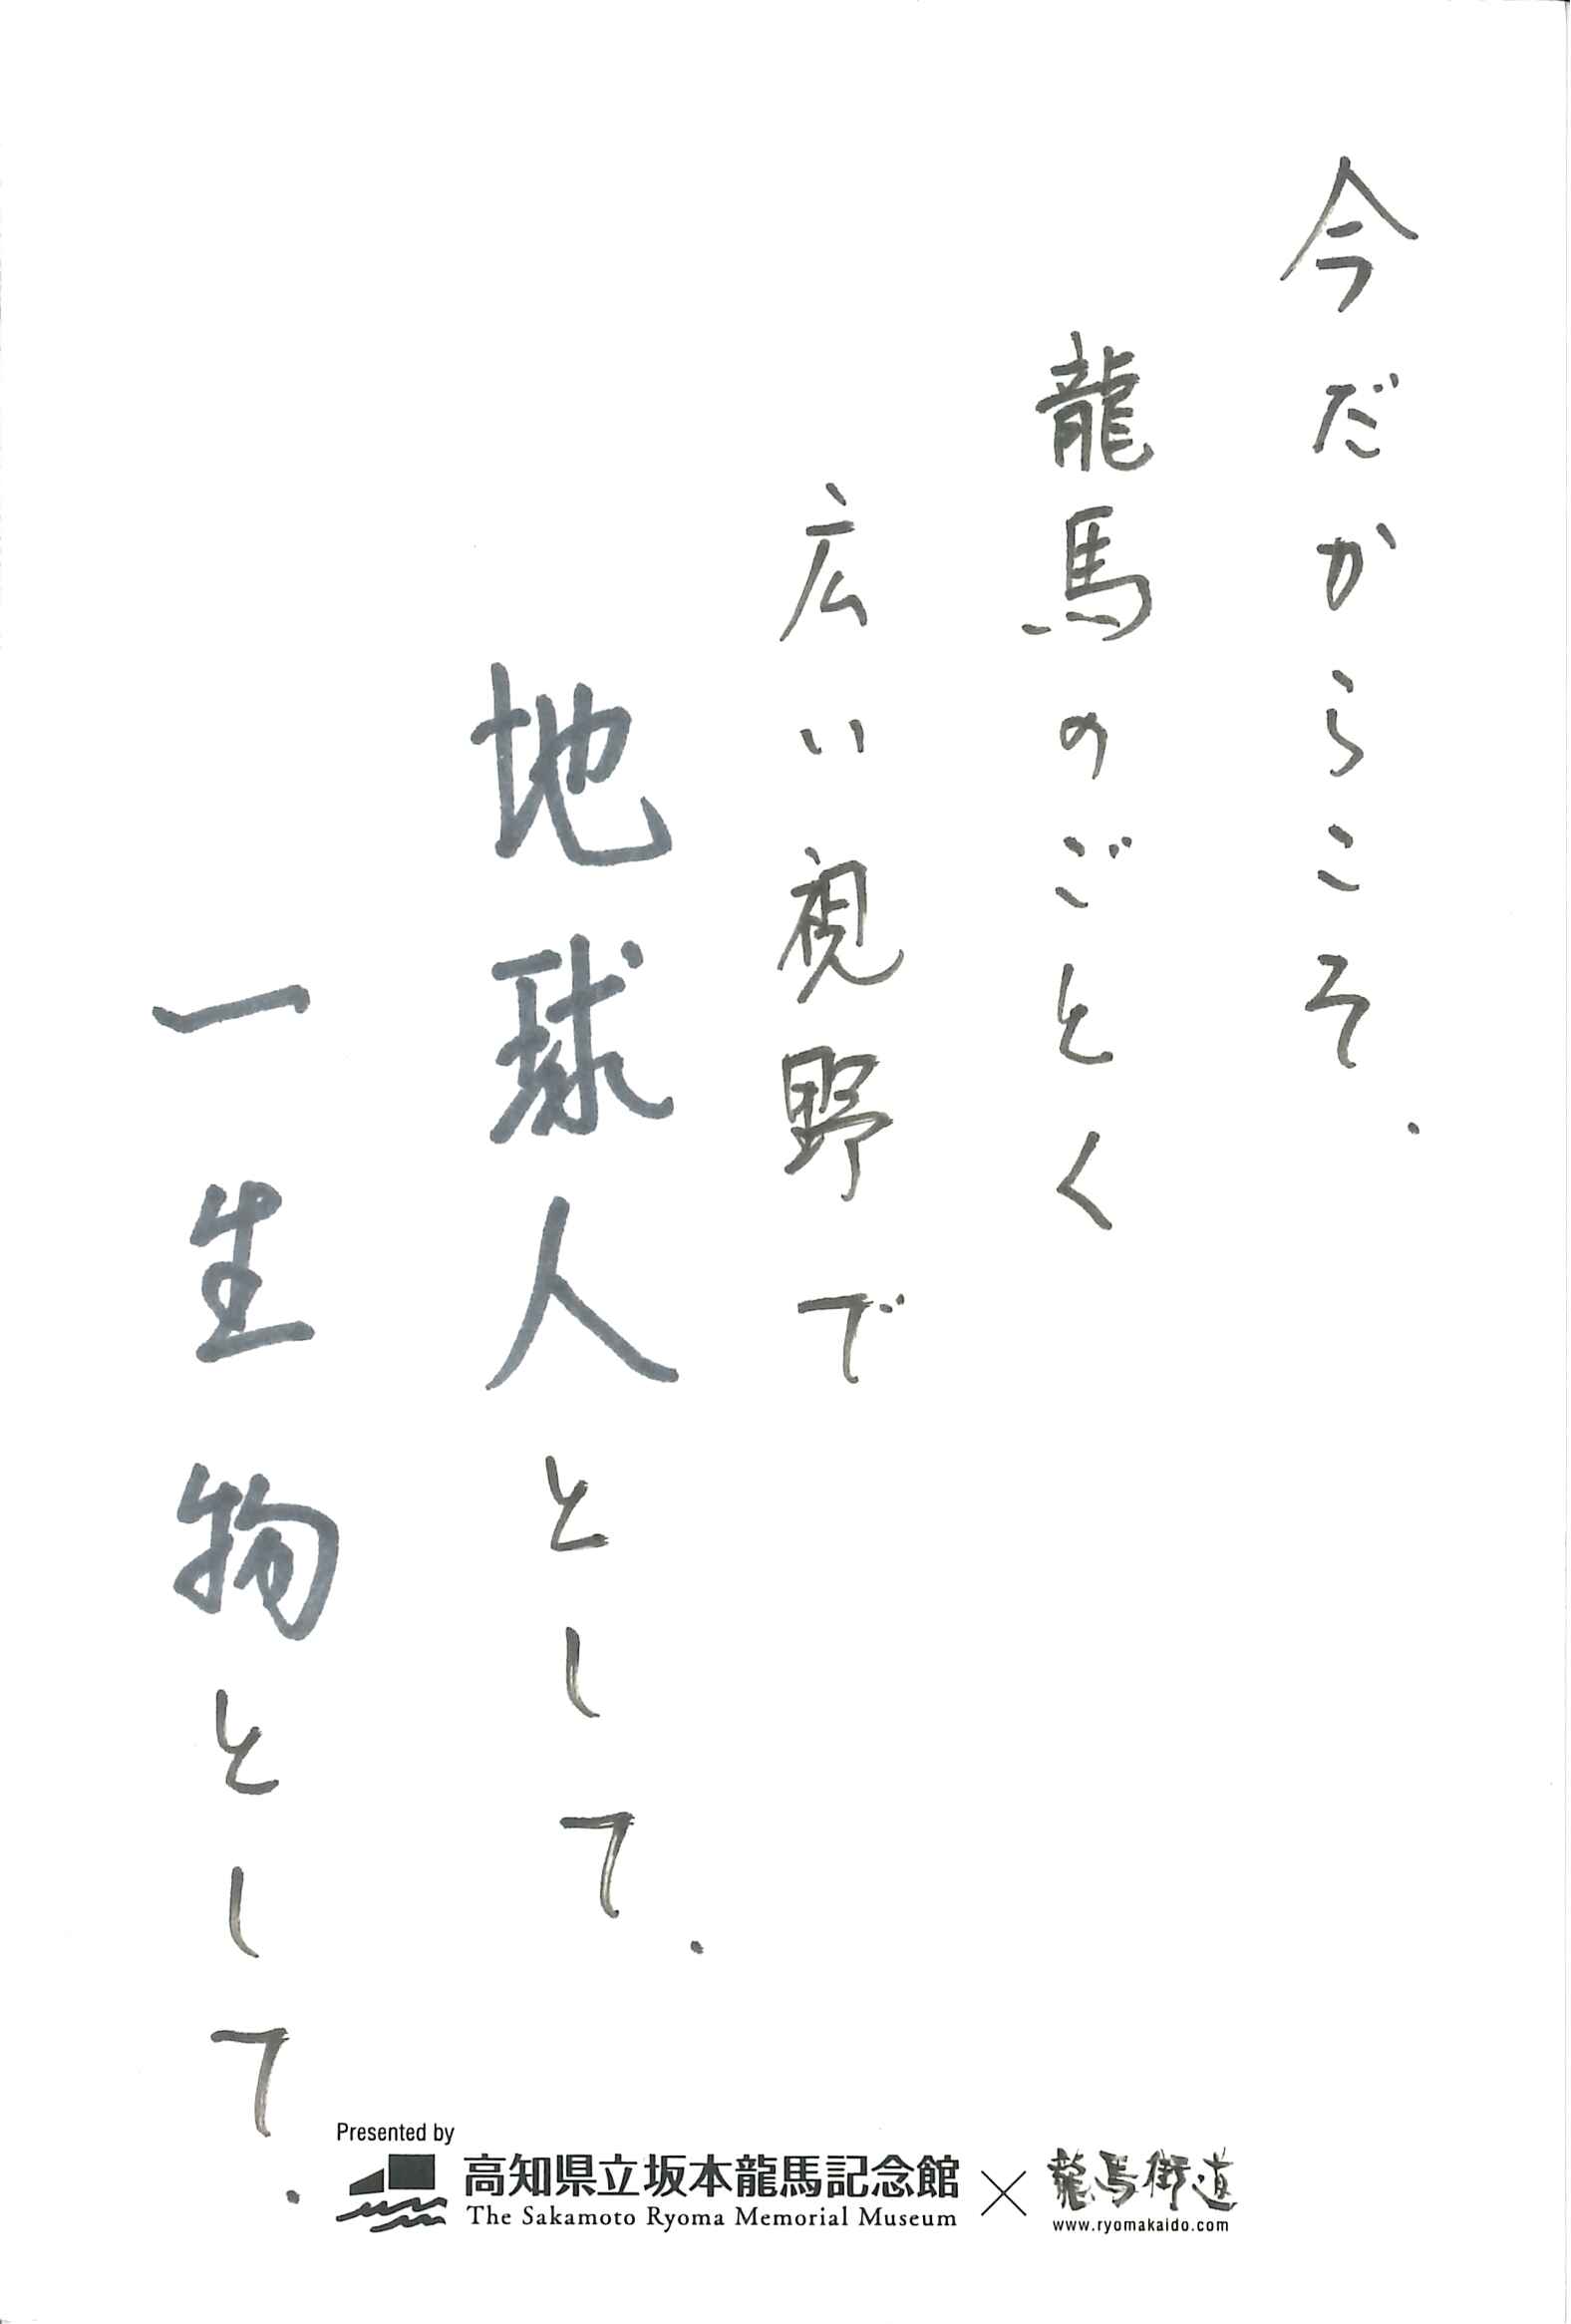 今だからこそ.
龍馬のごとく
広い視野で
地球人として.
一生物として.
Presented by
高知県立坂本龍馬記念館
The Sakamoto Ryoma Memorial Museum
×
龍馬街道
www.ryomakaido.com